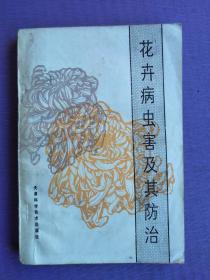 花卉病虫害及其防治
天津科学技术出版社